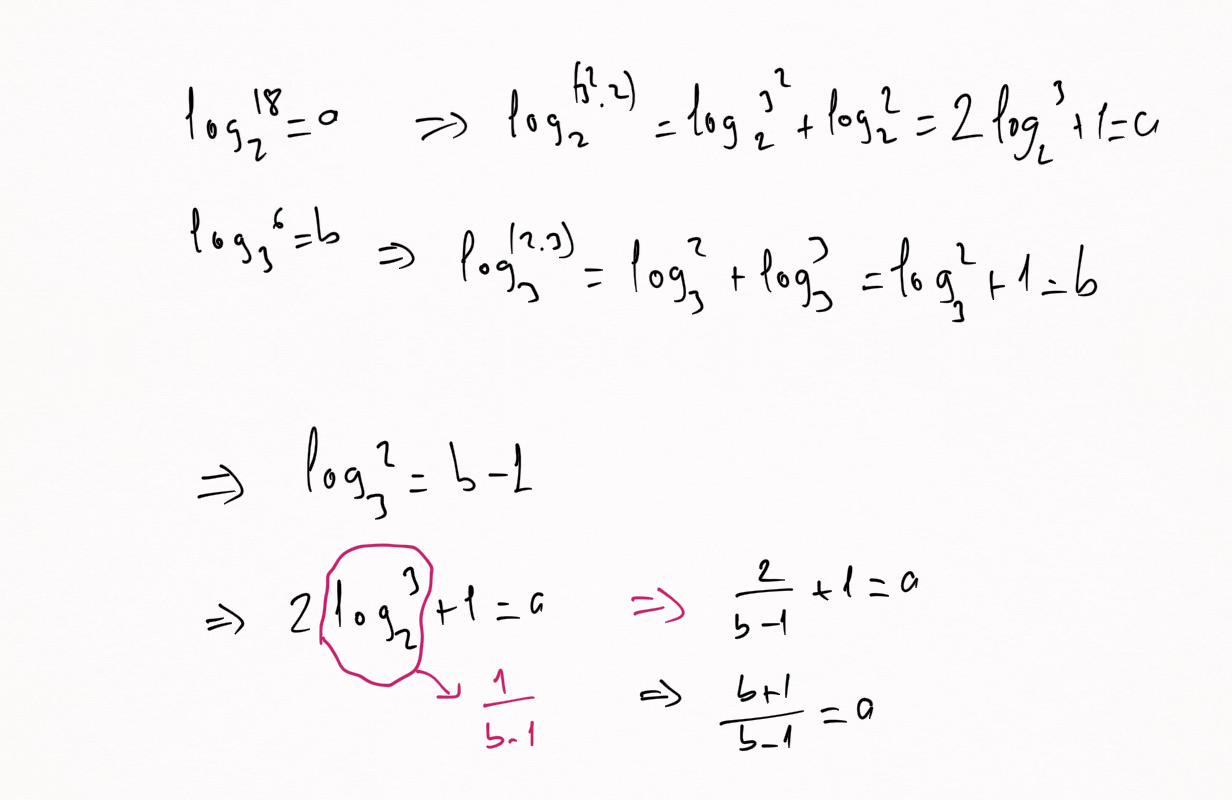 log₂¹⁸ = a ⇒ log₂^(3².2) = log₂3² + log₂2 = 2 log₂3 + 1 = a
log₃⁶ = b ⇒ log₃^(2.3) = log₃2 + log₃3 = log₃2 + 1 = b
⇒ log₃2 = b - 1
⇒ 2 log₂3 + 1 = a ⇒ 2/(b-1) + 1 = a
1/(b-1) ⇒ (b+1)/(b-1) = a